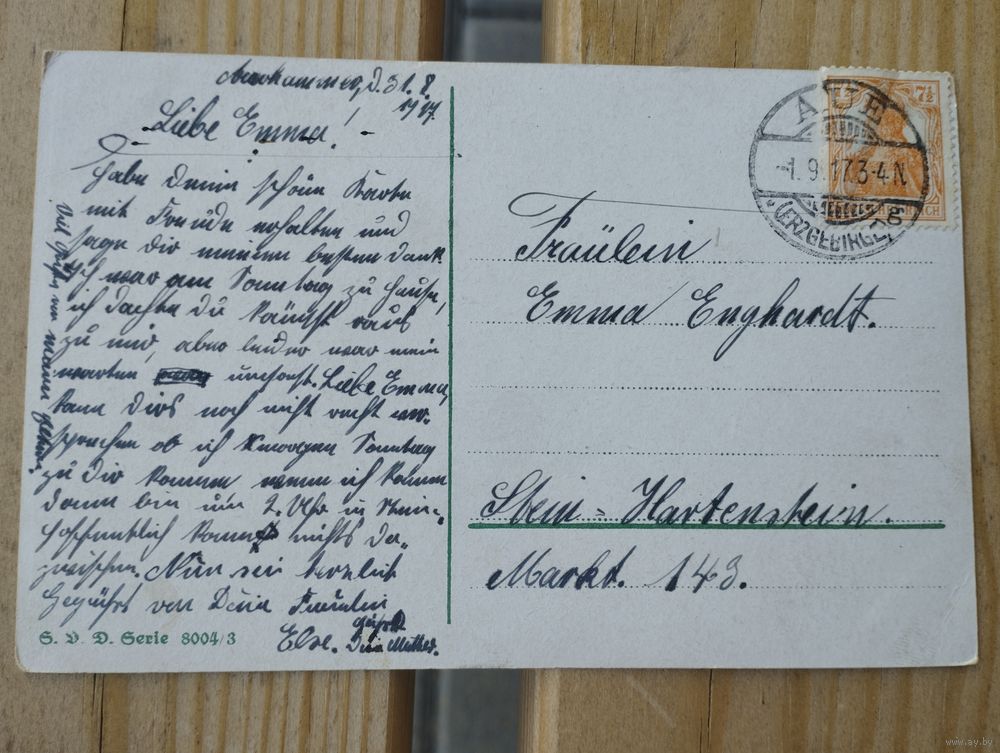 d. 31. 8.
1917.
Liebe Emma!
habe deine schöne Karte
mit Freude erhalten und
sage dir meinen besten Dank
ich war am Sonntag zu Hause,
ich dachte du kämst raus
zu mir, aber leider war mein
warten umsonst. Liebe Emma,
kann dirs noch nicht recht ver-
sprechen ob ich morgen Sonntag
zu dir komme wenn ich komme
dann bin um 2. Uhr in Stein
hoffentlich kommt nichts da-
zwischen. Nun sei herzlich
gegrüßt von Deine Freundin
Else.
Viel Grüße von
S. V. D. Serie 8004/3
AUE
-1. 9. 17. 3-4 N.
(ERZGEBIRGE)
7½
Fräulein
Emma Enghardt.
Stein-Hartenstein.
Markt. 143.
www.ay.by